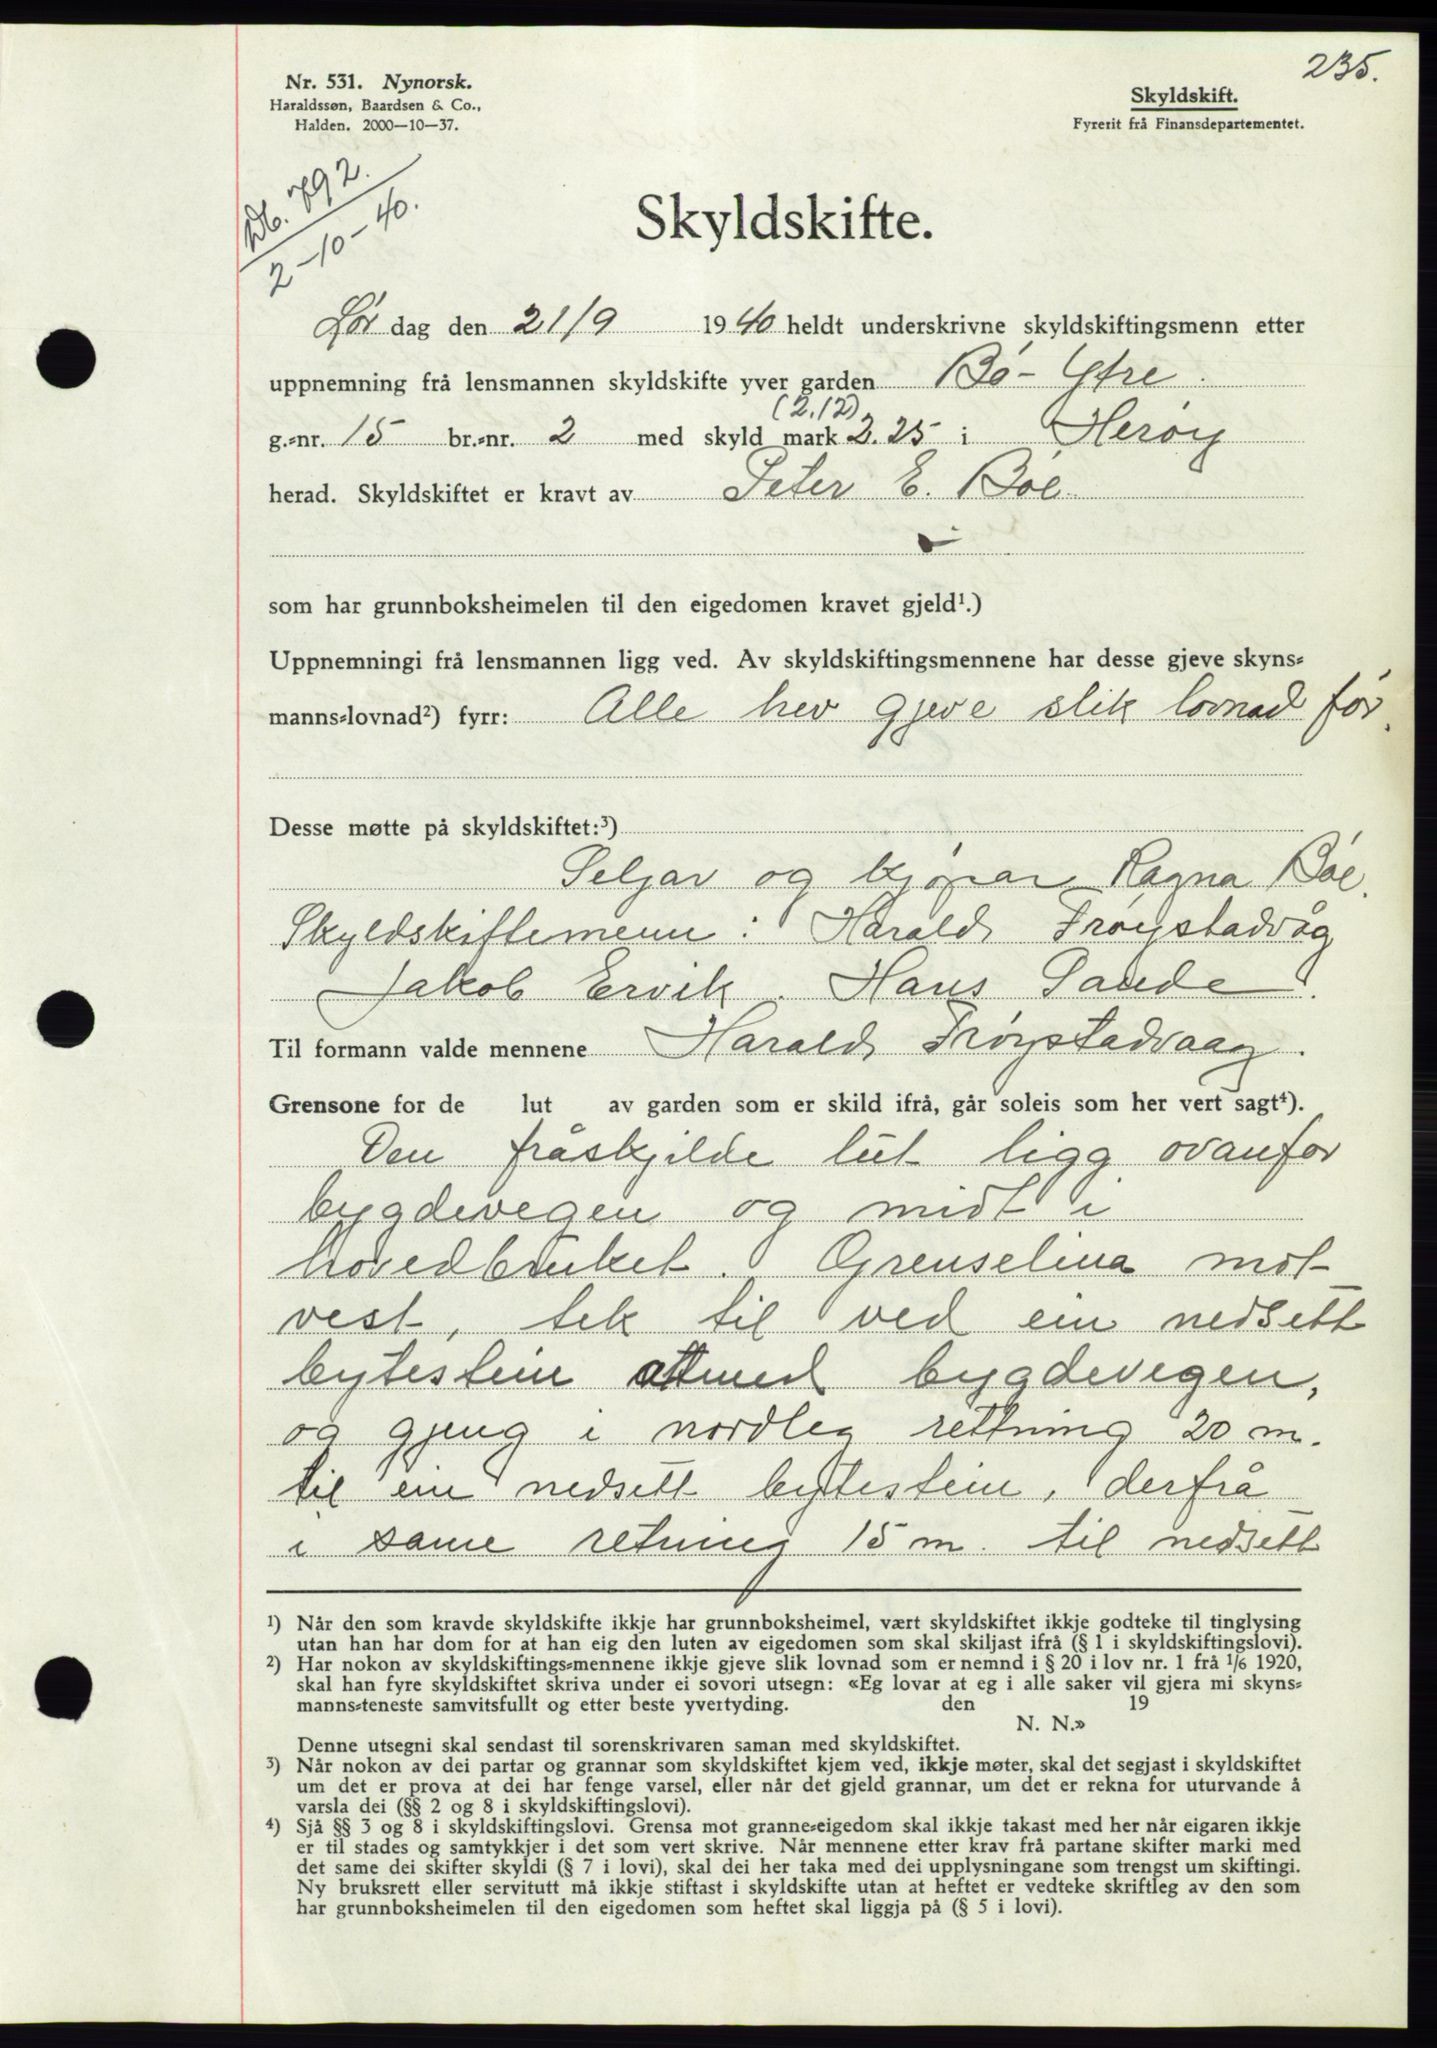 235.
Nr. 531. Nynorsk.
Haraldssøn, Baardsen & Co.,
Halden. 2000—10—37.
Skyldskift.
Fyrerit frå Finansdepartementet.
Db. 792.
2-10-40.
Skyldskifte.
Lør dag den 21/9 1940 heldt underskrivne skyldskiftingsmenn etter
uppnemning frå lensmannen skyldskifte yver garden Bø- Ytre.
(2,12)
g.=nr. 15 br.=nr. 2 med skyld mark 2.25 i Herøy
herad. Skyldskiftet er kravt av Peter E. Bøe
som har grunnboksheimelen til den eigedomen kravet gjeld¹.)
Uppnemningi frå lensmannen ligg ved. Av skyldskiftingsmennene har desse gjeve skyns=
manns=lovnad²) fyrr: Alle hev gjeve slik lovnad før.
Desse møtte på skyldskiftet:³)
Seljar og kjøpar Ragna Bøe.
Skyldskiftemenn: Harald Frøystadvåg
Jakob Ervik. Hans Sande.
Til formann valde mennene Harald Frøystadvaag.
Grensone for de lut av garden som er skild ifrå, går soleis som her vert sagt⁴).
Den fråskjilde lut ligg ovanfor
bygdevegen og midt i
hovedbruket. Grenselina mot
vest, tek til ved ein nedsett
bytestein attmed bygdevegen,
og gjeng i nordleg rettning 20 m.
til ein nedsett bytestein, derfrå
i same retning 15 m. til nedsett
¹) Når den som kravde skyldskifte ikkje har grunnboksheimel, vært skyldskiftet ikkje godteke til tinglysing
utan han har dom for at han eig den luten av eigedomen som skal skiljast ifrå (§ 1 i skyldskiftingslovi).
²) Har nokon av skyldskiftings=mennene ikkje gjeve slik lovnad som er nemnd i § 20 i lov nr. 1 frå 1/6 1920,
skal han fyre skyldskiftet skriva under ei sovori utsegn: «Eg lovar at eg i alle saker vil gjera mi skyns=
manns=teneste samvitsfullt og etter beste yvertyding. den 19
N. N.»
Denne utsegni skal sendast til sorenskrivaren saman med skyldskiftet.
³) Når nokon av dei partar og grannar som skyldskiftet kjem ved, ikkje møter, skal det segjast i skyldskiftet
um det er prova at dei har fenge varsel, eller når det gjeld grannar, um det er rekna for uturvande å
varsla dei (§§ 2 og 8 i skyldskiftingslovi).
⁴) Sjå §§ 3 og 8 i skyldskiftingslovi. Grensa mot granne=eigedom skal ikkje takast med her når eigaren ikkje
er til stades og samtykkjer i det som vert skrive. Når mennene etter krav frå partane skifter marki med
det same dei skifter skyldi (§ 7 i lovi), skal dei her taka med dei upplysningane som trengst um skiftingi.
Ny bruksrett eller servitutt må ikkje stiftast i skyldskifte utan at heftet er vedteke skriftleg av den som
har grunnboksheimelen til den eigedomen som heftet skal liggja på (§ 5 i lovi).